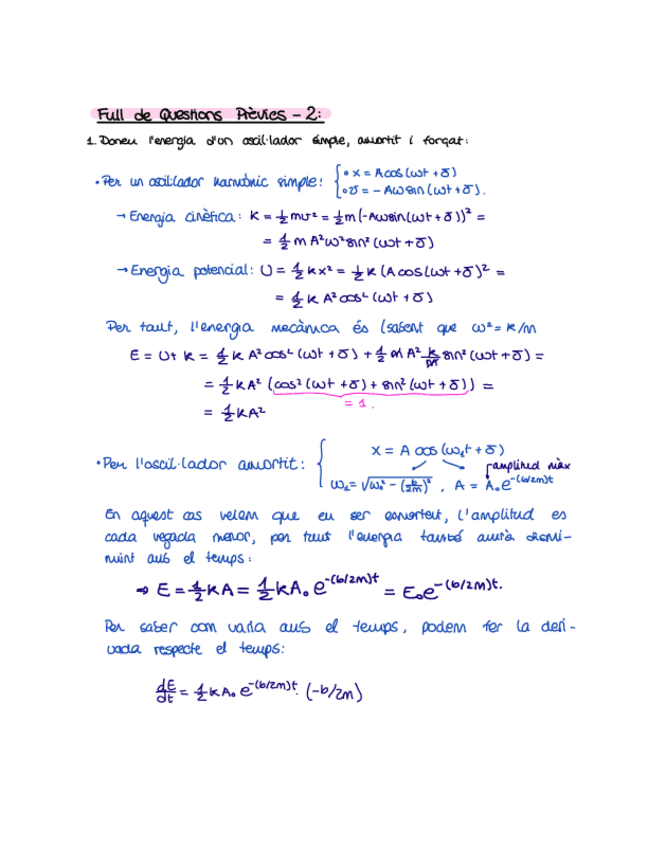 Full de Questions Prèvies - 2:
1. Doneu l'energia d'un oscil·lador simple, amortit i forçat:
• Per un oscil·lador harmònic simple: { • x = A cos (ωt + δ)
• v = - Aω sin (ωt + δ).
→ Energia cinètica: K = 1/2 mv² = 1/2 m (-Aω sin (ωt + δ))² =
= 1/2 m A² ω² sin² (ωt + δ)
→ Energia potencial: U = 1/2 k x² = 1/2 k (A cos (ωt + δ)² =
= 1/2 k A² cos² (ωt + δ)
Per tant, l'energia mecànica és (sabent que ω² = k/m
E = U + K = 1/2 k A² cos² (ωt + δ) + 1/2 m A² k/m sin² (ωt + δ) =
= 1/2 k A² (cos² (ωt + δ) + sin² (ωt + δ)) =
= 1.
= 1/2 k A²
• Per l'oscil·lador amortit: { x = A cos (ω₁t + δ)
amplitud màx
ω₁ = √(ω₀² - (b/2m)²) , A = A₀ e^-(b/2m)t
En aquest cas velem que en ser esmorteït, l'amplitud es
cada vegada menor, per tant l'energia també anirà dismi-
nuint amb el temps:
⇒ E = 1/2 k A = 1/2 k A₀ e^-(b/2m)t = E₀ e^-(b/2m)t.
Per saber com varia amb el temps, podem fer la deri-
vada respecte el temps:
dE/dt = 1/2 k A₀ e^-(b/2m)t · (-b/2m)